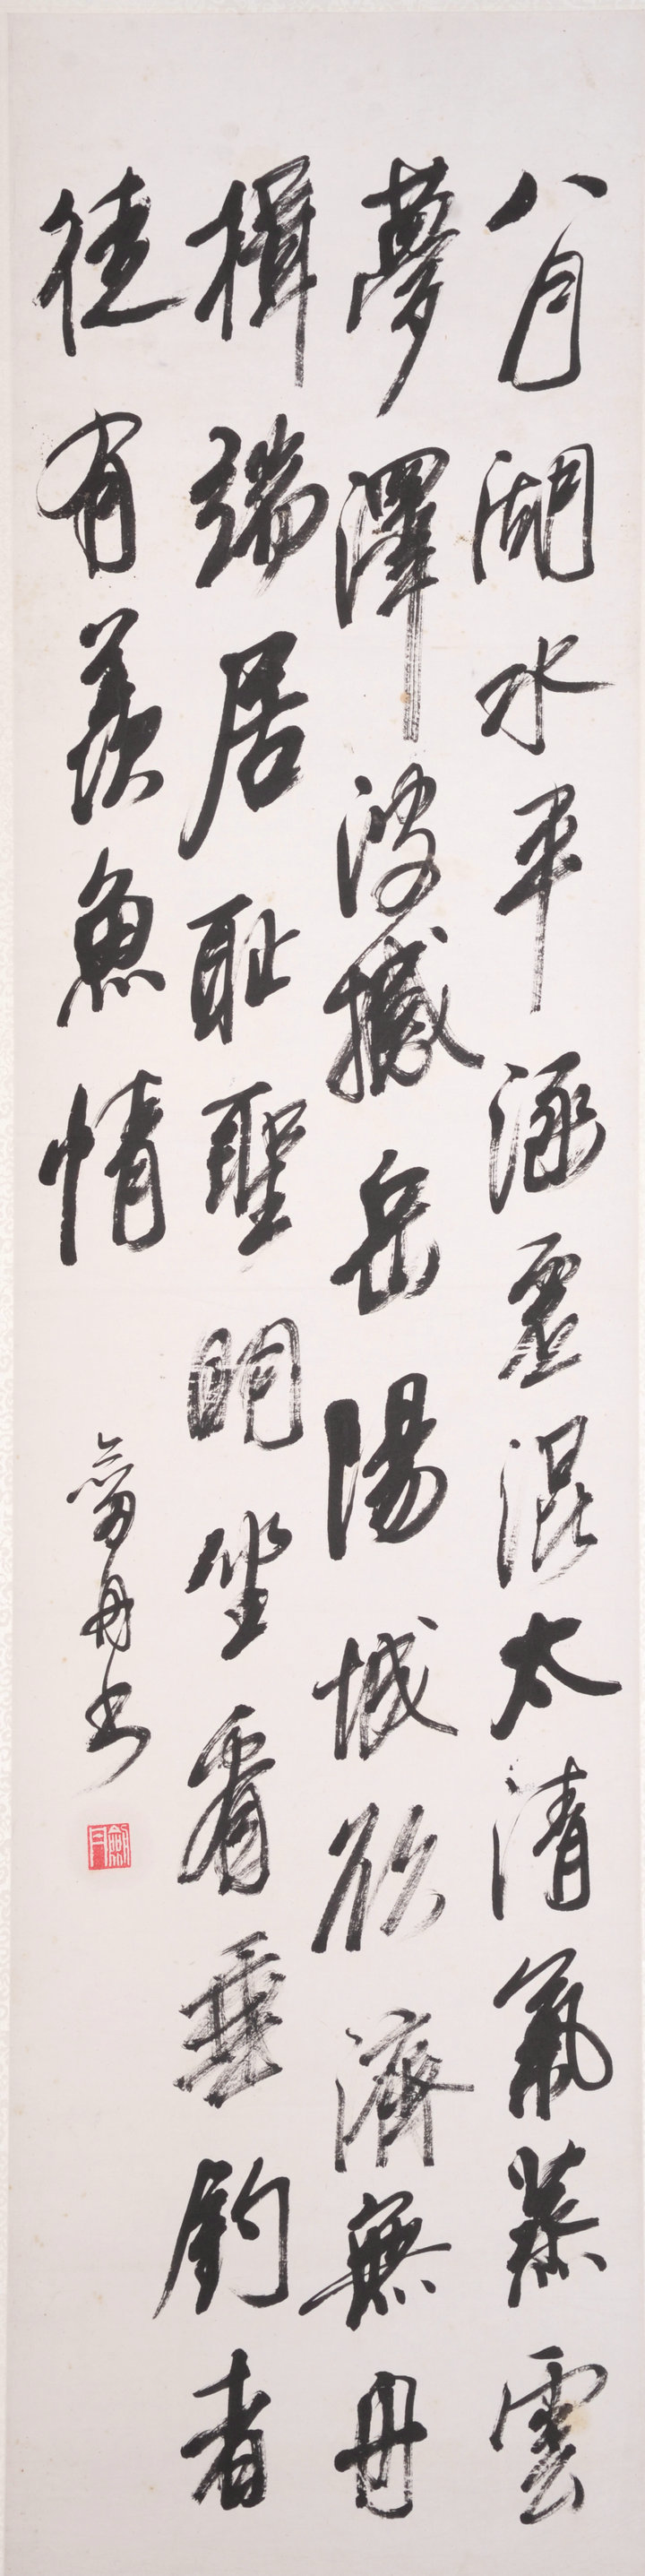 八月湖水平涵虛混太清氣蒸雲
夢澤波撼岳陽城欲濟無舟
楫端居恥聖明坐看垂釣者
徒有羨魚情
舟書